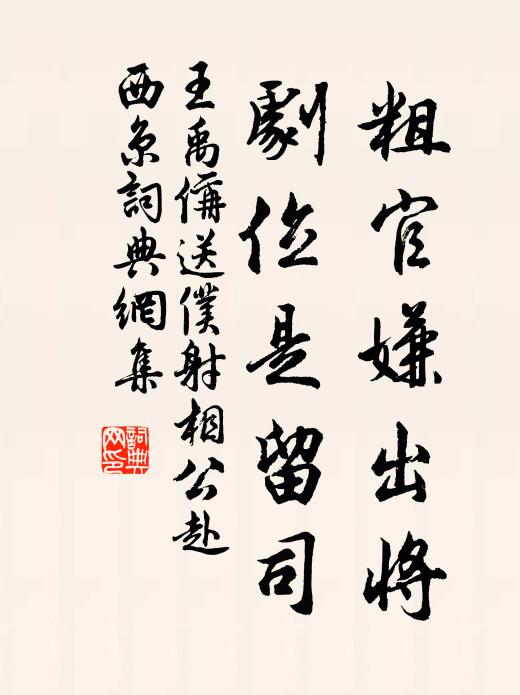 粗官嫌出將
劇位是留司
王禹偁送僕射相公赴
西京詞典網集
詞典
网印